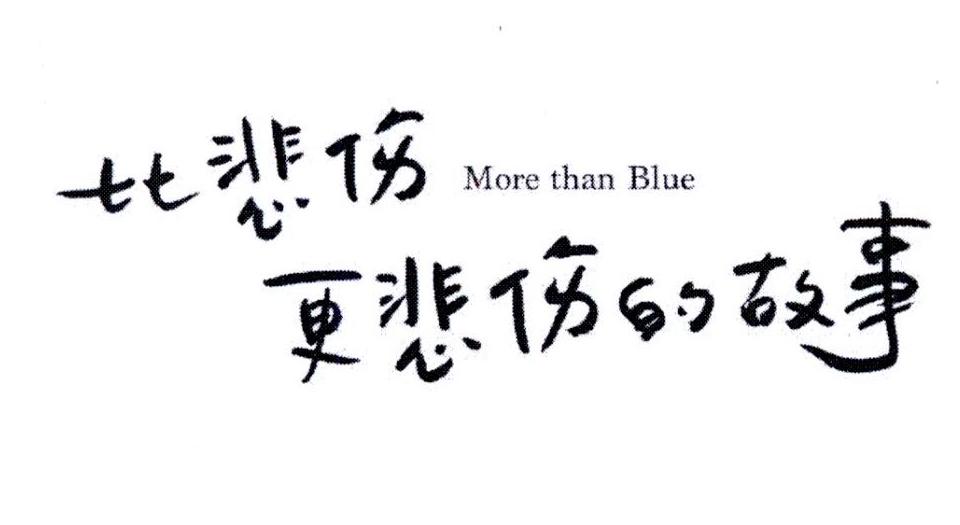 比悲伤 More than Blue
更悲伤的故事